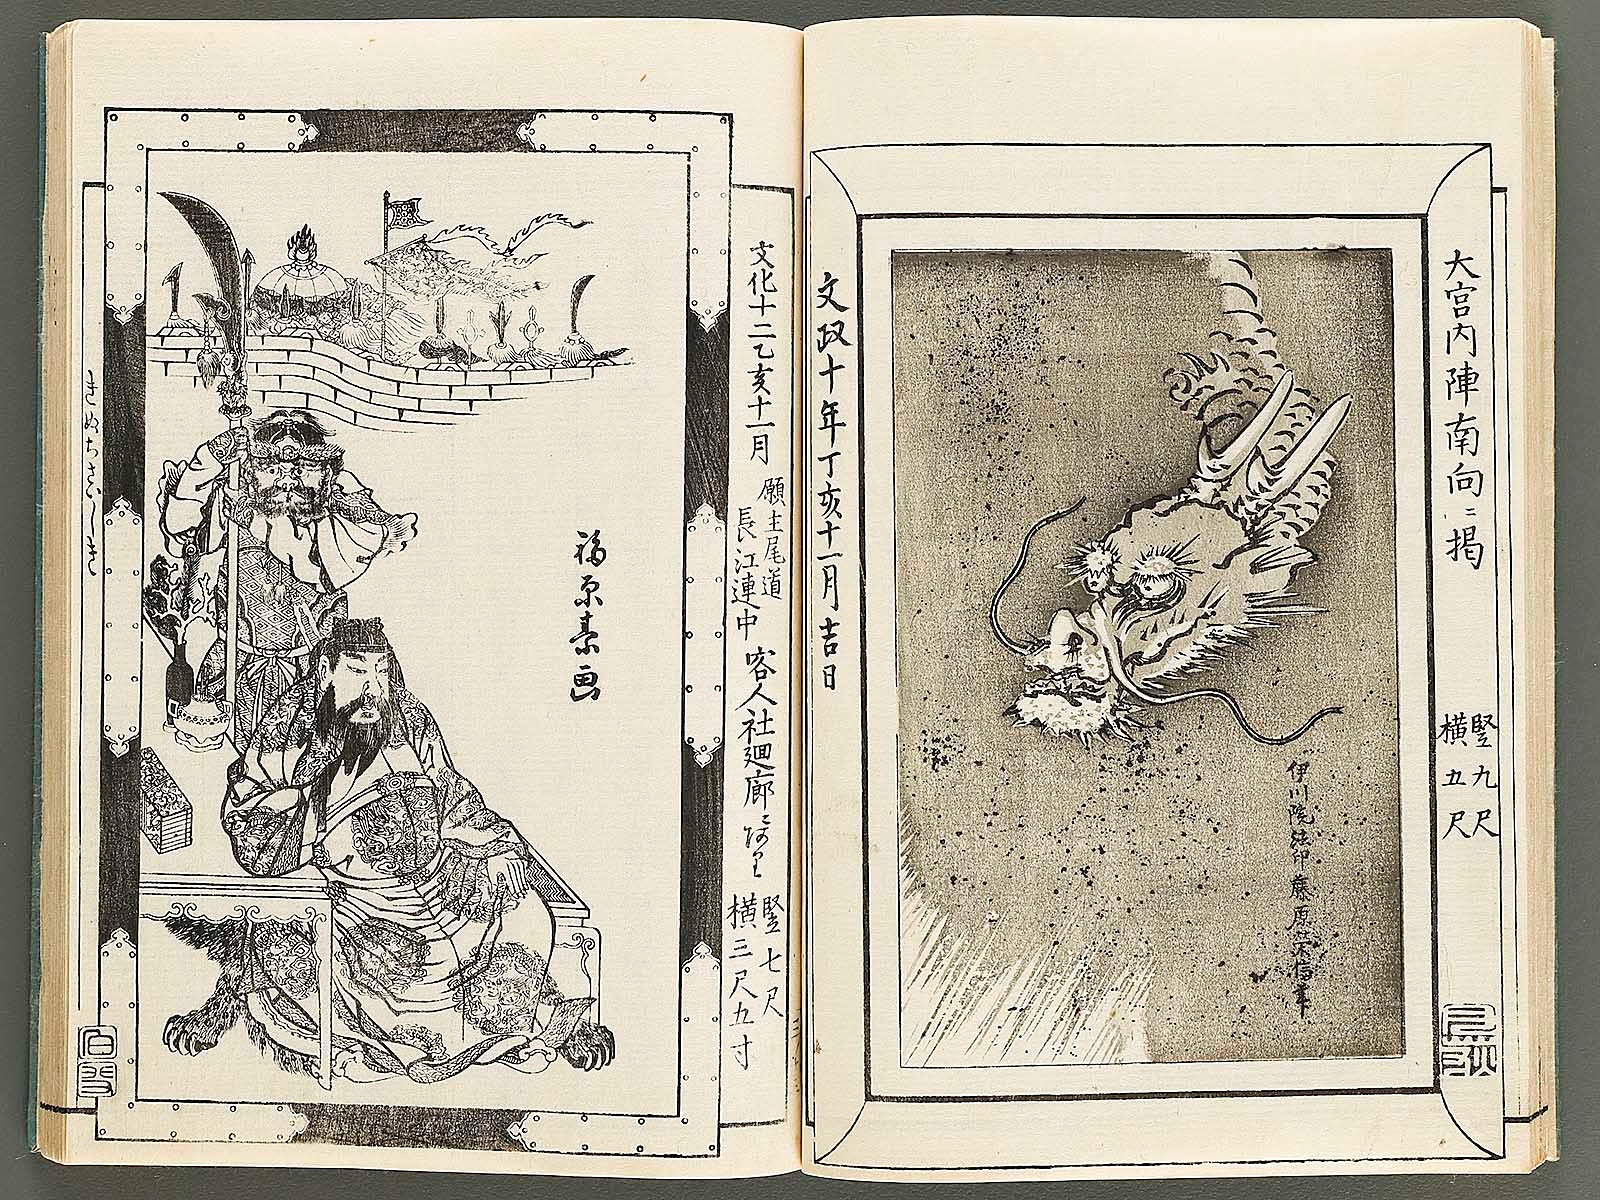 大宮内陣南向ニ掲
竪九尺
横五尺
伊川院法印藤原栄信筆
文政十年丁亥十一月吉日
文化十二乙亥十一月
願主尾道
長江連中
客人社廻廊ニあり
竪七尺
横三尺五寸
福原素画
きぬぢさいしき